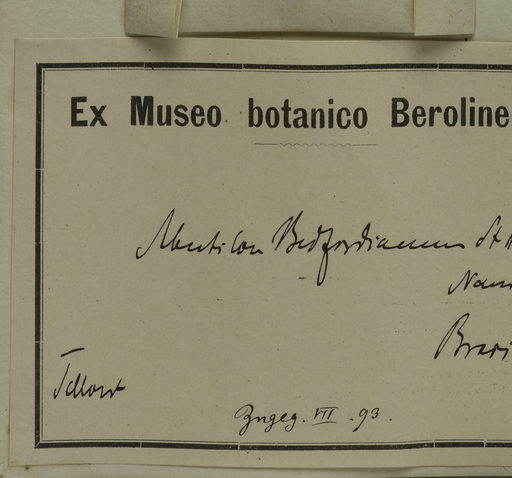 Ex Museo botanico Beroline
Abutilon Bedfordianum St H
Nam
Brasi
Sellow
Zngeg. VII. 93.